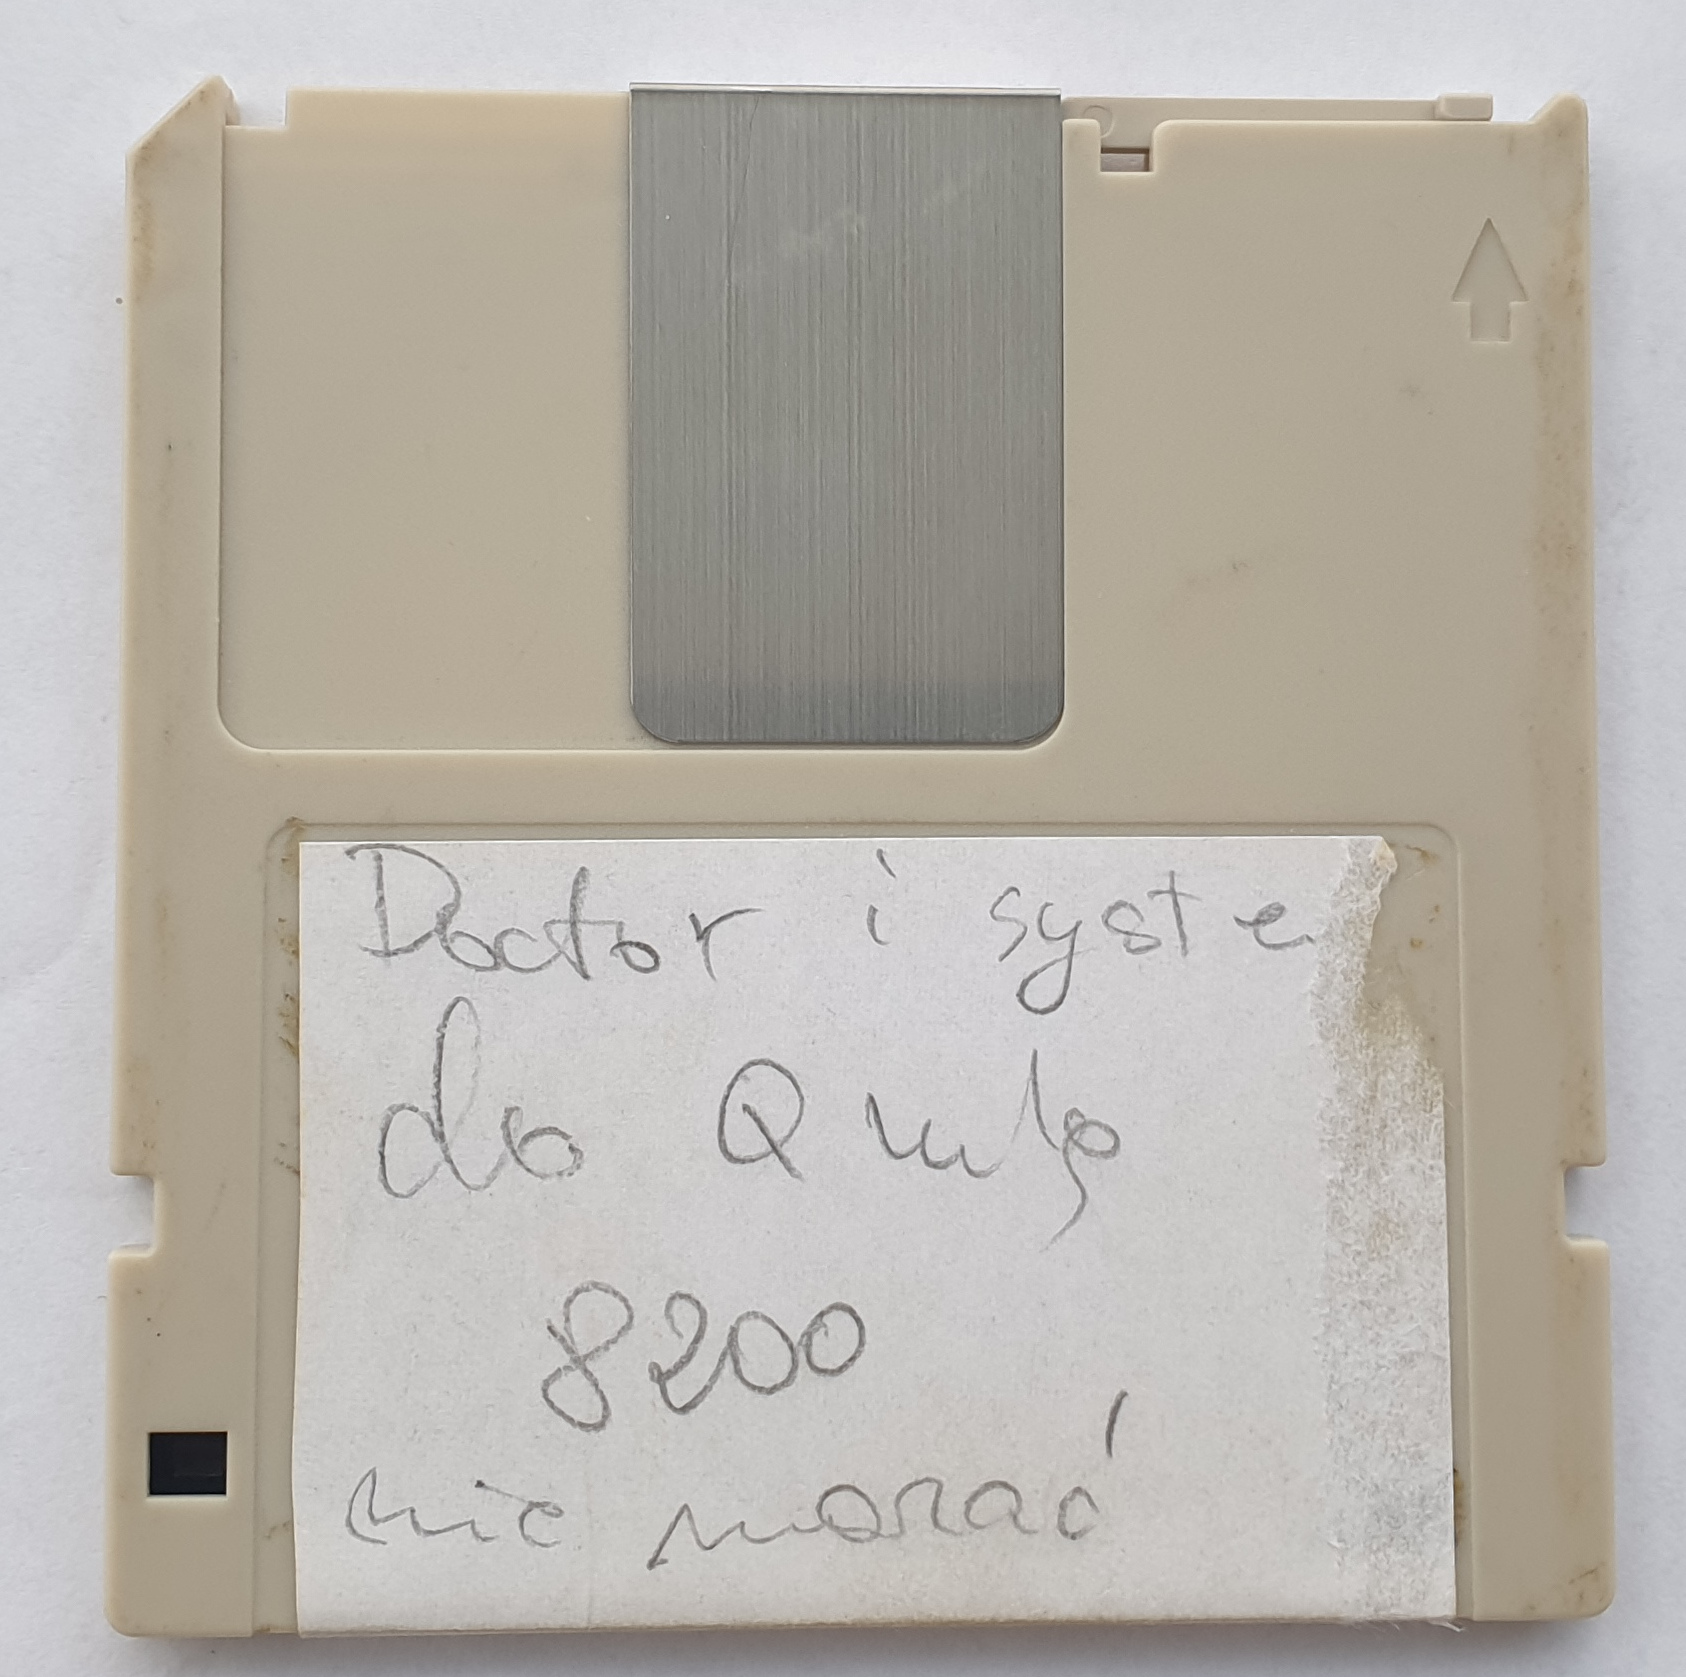 Doctor i syste
do Qumę
8200
nie mazać